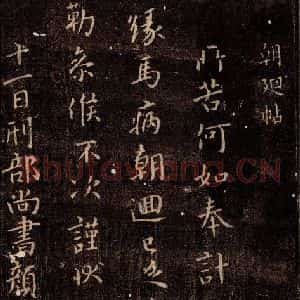 朝廻帖
所苦何如奉計
緣馬病朝迴已
勒參候不次謹狀
十一日刑部尚書顏
Shufawang.CN